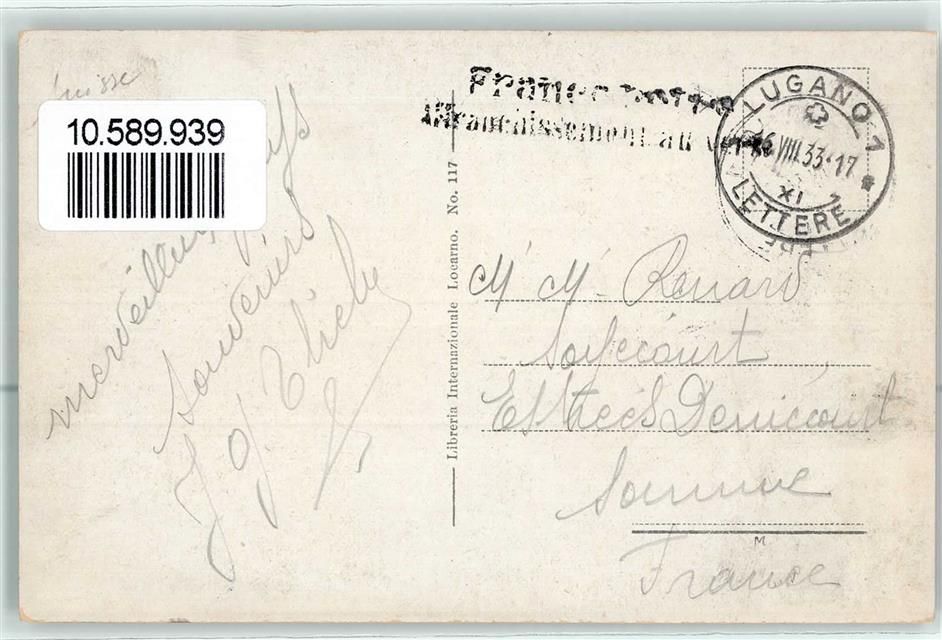 Suisse
10.589.939
merveilleux pays
Souvenirs
Libreria Internazionale Locarno. No. 117
Franco partie
Affranchissement au verso
LUGANO 1
16.VIII.33.17
XI
LETTERE
M. M. Renard
Soyécourt
Estrées Deniécourt
Somme
France